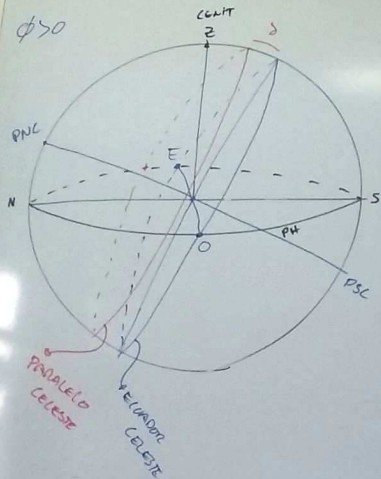 ϕ>0
CENIT
Z
δ
PNC
E
N
S
O
PH
PSC
PARALELO
CELESTE
ECUADOR
CELESTE